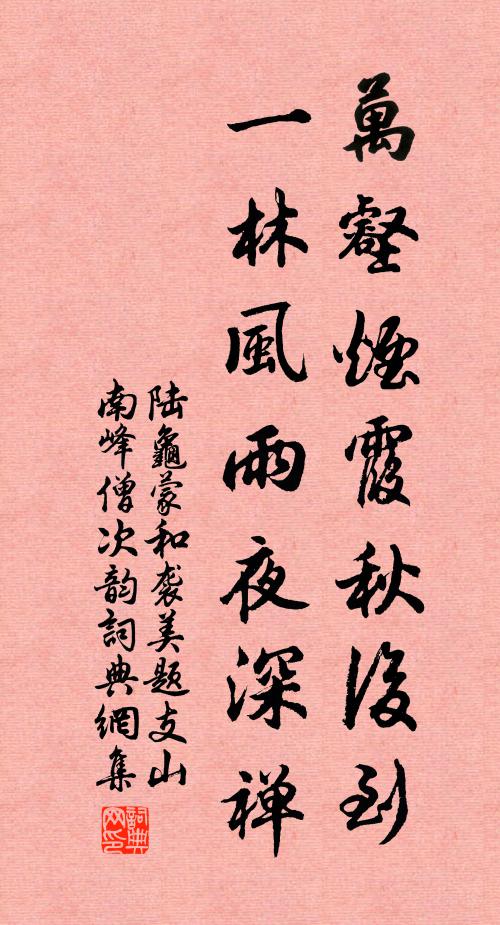 萬壑煙霞秋後到
一林風雨夜深禅
陆龜蒙和袭美题支山
南峰僧次韵詞典網集
詞典
网印